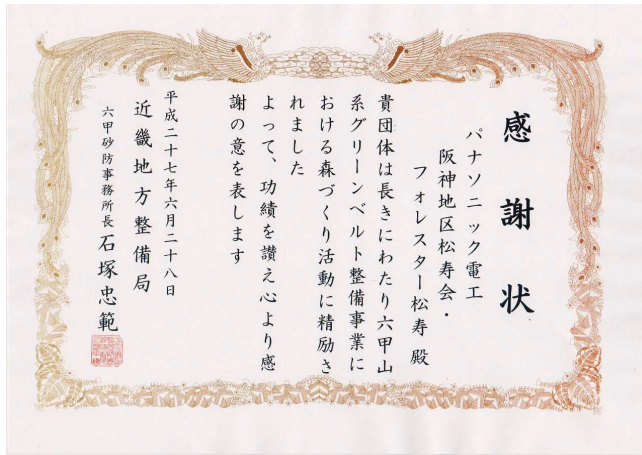 感謝状
パナソニック電工
阪神地区松寿会・
フォレスター松寿 殿
貴団体は長きにわたり六甲山
系グリーンベルト整備事業に
おける森づくり活動に精励さ
れました
よって、功績を讃え心より感
謝の意を表します
平成二十七年六月二十八日
近畿地方整備局
六甲砂防事務所長 石塚忠範